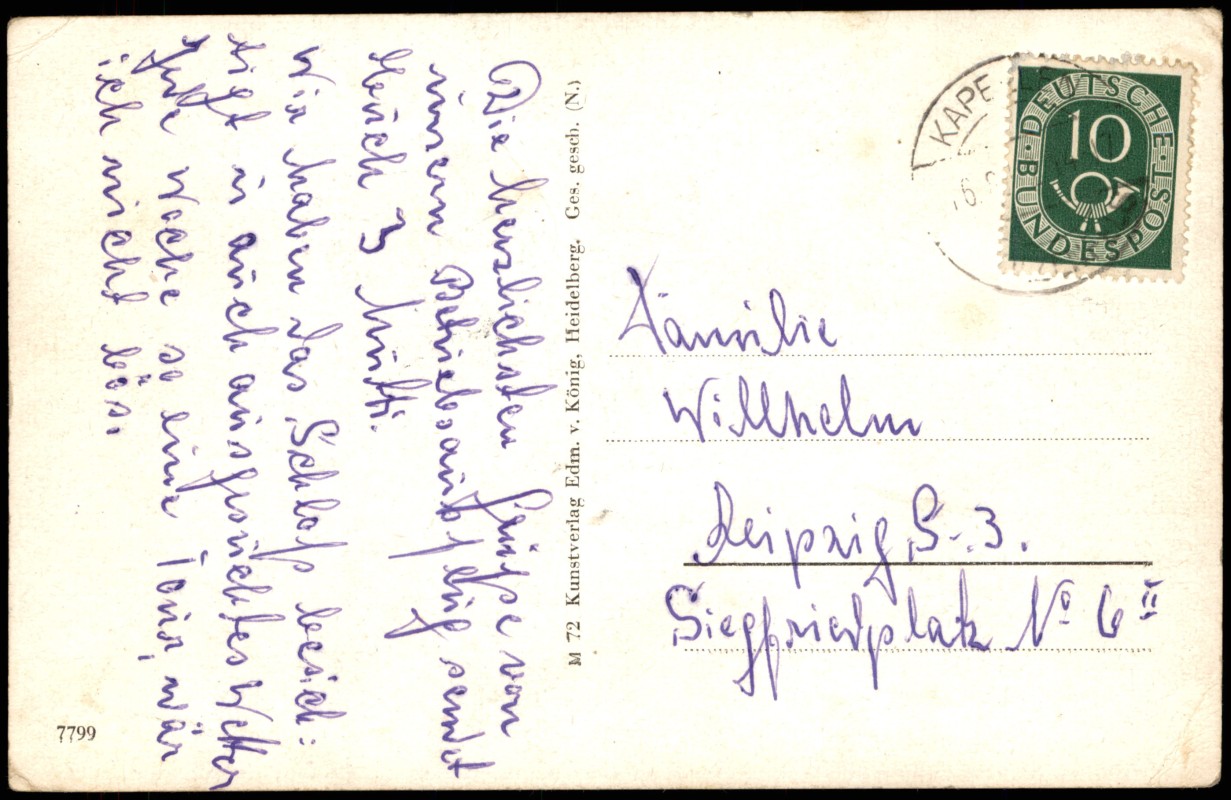 Die herzlichsten Grüße von
unserm Betriebsausflug sendet
Euch 3 Mutti.
Wir haben das Schloß besich:
tigt u auch ausgesuchtes Wetter
Jede Woche so eine Tour, wär
ich nicht bös.
M 72 Kunstverlag Edm. v. König, Heidelberg. Ges. gesch. (N.)
7799
KAPE
DEUTSCHE BUNDESPOST
10
Familie
Willhelm
Leipzig S-3.
Siegfriedplatz No 6 II